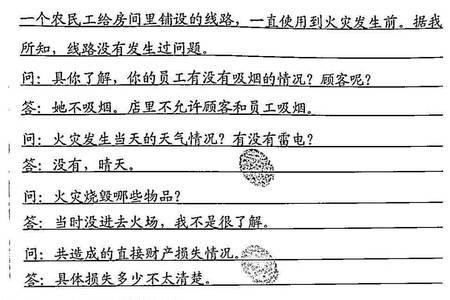 一个农民工给房间里铺设的线路，一直使用到火灾发生前。据我
所知，线路没有发生过问题。
问：具你了解，你的员工有没有吸烟的情况？顾客呢？
答：她不吸烟。店里不允许顾客和员工吸烟。
问：火灾发生当天的天气情况？有没有雷电？
答：没有，晴天。
问：火灾烧毁哪些物品？
答：当时没进去火场，我不是很了解。
问：共造成的直接财产损失情况。
答：具体损失多少不太清楚。